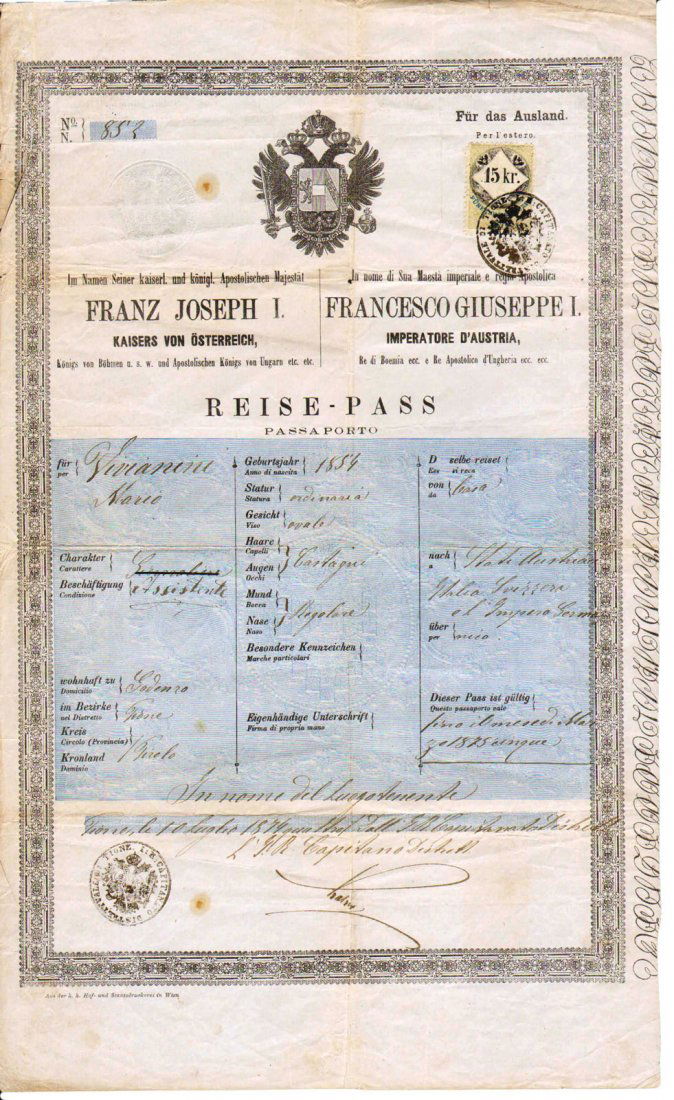 No. N. 853
Für das Ausland.
Per l'estero.
15 kr.
Im Namen Seiner kaiserl. und königl. Apostolischen Majestät
FRANZ JOSEPH I.
KAISERS VON ÖSTERREICH,
Königs von Böhmen u. s. w. und Apostolischen Königs von Ungarn etc. etc.
In nome di Sua Maestà imperiale e regia Apostolica
FRANCESCO GIUSEPPE I.
IMPERATORE D'AUSTRIA,
Re di Boemia ecc. e Re Apostolico d'Ungheria ecc. ecc.
REISE-PASS
PASSAPORTO
für
per
Vivianini
Marco
Charakter
Carattere
Beschäftigung
Condizione
Assistente
wohnhaft zu
Domicilio
Godenzo
im Bezirke
nel Distretto
Tione
Kreis
Circolo (Provincia)
Kronland
Dominio
Tirolo
Geburtsjahr
Anno di nascita
1854
Statur
Statura
ordinaria
Gesicht
Viso
ovale
Haare
Capelli
Augen
Occhi
Castagni
Mund
Bocca
Nase
Naso
Regolare
Besondere Kennzeichen
Marche particolari
Eigenhändige Unterschrift
Firma di propria mano
D selbe reiset
Ess si reca
von
da
Casa
nach
a
Stati Austriaci
Italia Svizzera
e l'Impero
über
per
Dieser Pass ist gültig
Questo passaporto vale
fino il mese di Mar
zo 1875 cinque
In nome del Luogotenente
Tione, li 10 Luglio Dall' I. R. Capitanato Distrett
L' I. R. Capitano Distrett
Aus der k. k. Hof- und Staatsdruckerei in Wien